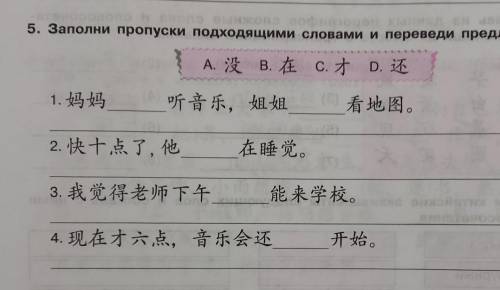 5. Заполни пропуски подходящими словами и переведи
A. 没 B. 在 C. 才 D. 还
1. 妈妈______听音乐，姐姐______看地图。
2. 快十点了，他______在睡觉。
3. 我觉得老师下午______能来学校。
4. 现在才六点，音乐会还______开始。